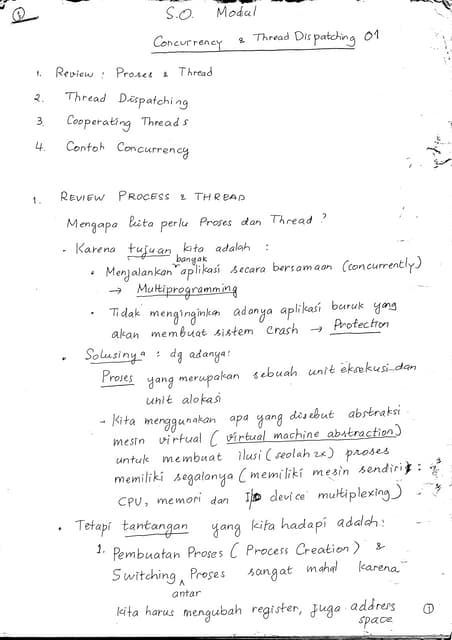 ①
S.O. Modul
Concurrency & Thread Dispatching 01
1. Review : Proses & Thread
2. Thread Dispatching
3. Cooperating Threads
4. Contoh Concurrency
1. REVIEW PROCESS & THREAD
Mengapa kita perlu Proses dan Thread ?
- Karena tujuan kita adalah :
• Menjalankan banyak aplikasi secara bersamaan (concurrently)
→ Multiprogramming
• Tidak menginginkan adanya aplikasi buruk yang
akan membuat sistem crash → Protection
• Solusinya : dg adanya:
Proses yang merupakan sebuah unit eksekusi dan
unit alokasi
- Kita menggunakan apa yang disebut abstraksi
mesin virtual ( virtual machine abstraction)
untuk membuat ilusi ( seolah2x) proses
memiliki segalanya ( memiliki mesin sendiri :
CPU, memori dan I/O device multiplexing )
• Tetapi tantangan yang kita hadapi adalah:
1. Pembuatan Proses ( Process Creation ) &
Switching antar Proses sangat mahal karena
kita harus mengubah register, juga address space
①